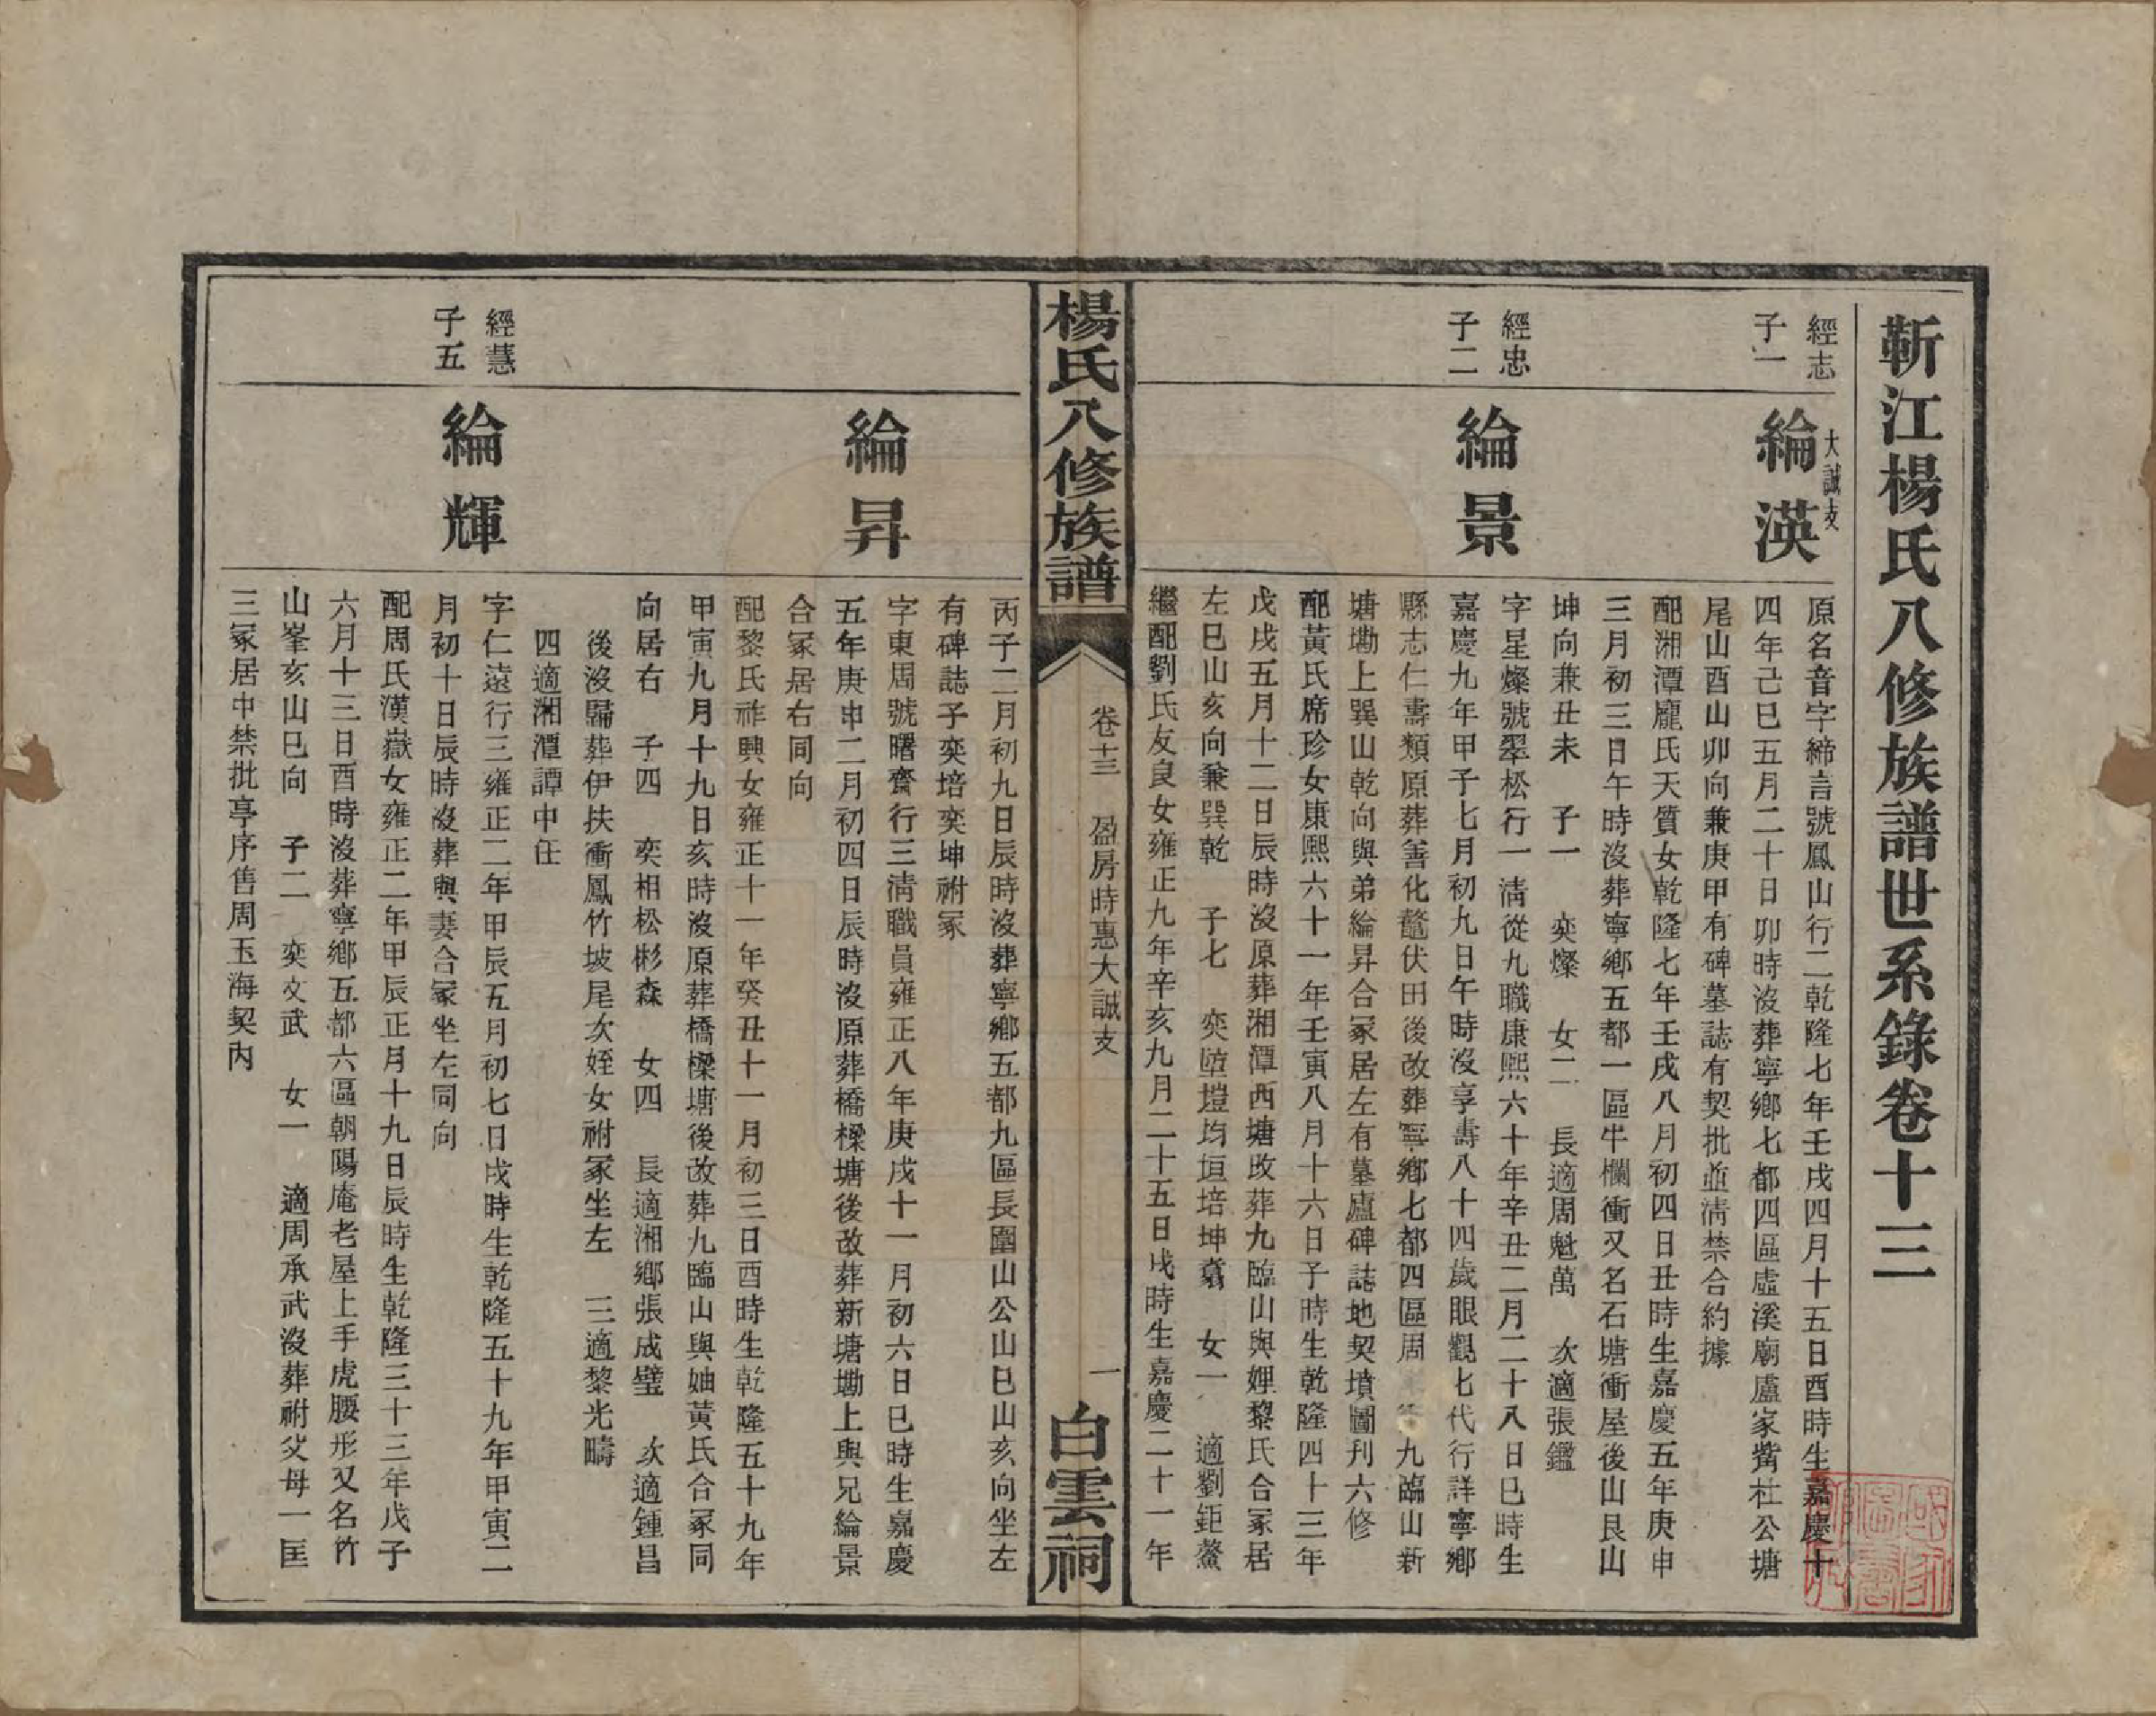 靳江楊氏八修族譜世系錄卷十三
經志
子一
大誠支
綸渶
原名音字締言號鳳山行二乾隆七年壬戌四月十五日酉時生嘉慶十
四年己巳五月二十日卯時沒葬寧鄉七都四區虛溪廟盧家觜杜公塘
尾山酉山卯向兼庚甲有碑墓誌有契批並清禁合約據
配湘潭龐氏天質女乾隆七年壬戌八月初四日丑時生嘉慶五年庚申
三月初三日午時沒葬寧鄉五都一區牛欄衝又名石塘衝屋後山艮山
坤向兼丑未 子一 奕燦 女二 長適周魁萬 次適張鑑
經忠
子二
綸景
字星燦號翠松行一清從九職康熙六十年辛丑二月二十八日巳時生
嘉慶九年甲子七月初九日午時沒享壽八十四歲眼觀七代行詳寧鄉
縣志仁壽類原葬善化髦伏田後改葬寧鄉七都四區周 九臨山新
塘塅上巽山乾向與弟綸昇合冢居左有墓廬碑誌地契墳圖刊六修
配黃氏席珍女康熙六十一年壬寅八月十六日子時生乾隆四十三年
戊戌五月十二日辰時沒原葬湘潭西塘改葬九臨山與娌黎氏合冢居
左巳山亥向兼巽乾 子七 奕堕塏均垣培坤 女一 適劉鉅鰲
繼配劉氏友良女雍正九年辛亥九月二十五日戌時生嘉慶二十一年
楊氏八修族譜
卷十三 盈房時惠大誠支 一
白雲祠
丙子二月初九日辰時沒葬寧鄉五都九區長圍山公山巳山亥向坐左
有碑誌子奕培奕坤祔冢
綸昇
字東周號曙齋行三清職員雍正八年庚戌十一月初六日巳時生嘉慶
五年庚申二月初四日辰時沒原葬橋樑塘後改葬新塘塅上與兄綸景
合冢居右同向
配黎氏祚興女雍正十一年癸丑十一月初三日酉時生乾隆五十九年
甲寅九月十九日亥時沒原葬橋樑塘後改葬九臨山與妯黃氏合冢同
向居右 子四 奕相松彬森 女四 長適湘鄉張成璧 次適鍾昌
後沒歸葬伊扶衝鳳竹坡尾次姪女祔冢坐左 三適黎光疇
四適湘潭譚中任
經慧
子五
綸輝
字仁遠行三雍正二年甲辰五月初七日戌時生乾隆五十九年甲寅二
月初十日辰時沒葬與妻合冢坐左同向
配周氏漢嶽女雍正二年甲辰正月十九日辰時生乾隆三十三年戊子
六月十三日酉時沒葬寧鄉五都六區朝陽庵老屋上手虎腰形又名竹
山峯亥山巳向 子二 奕文武 女一 適周承武沒葬祔父母一匡
三冢居中禁批亭序售周玉海契內